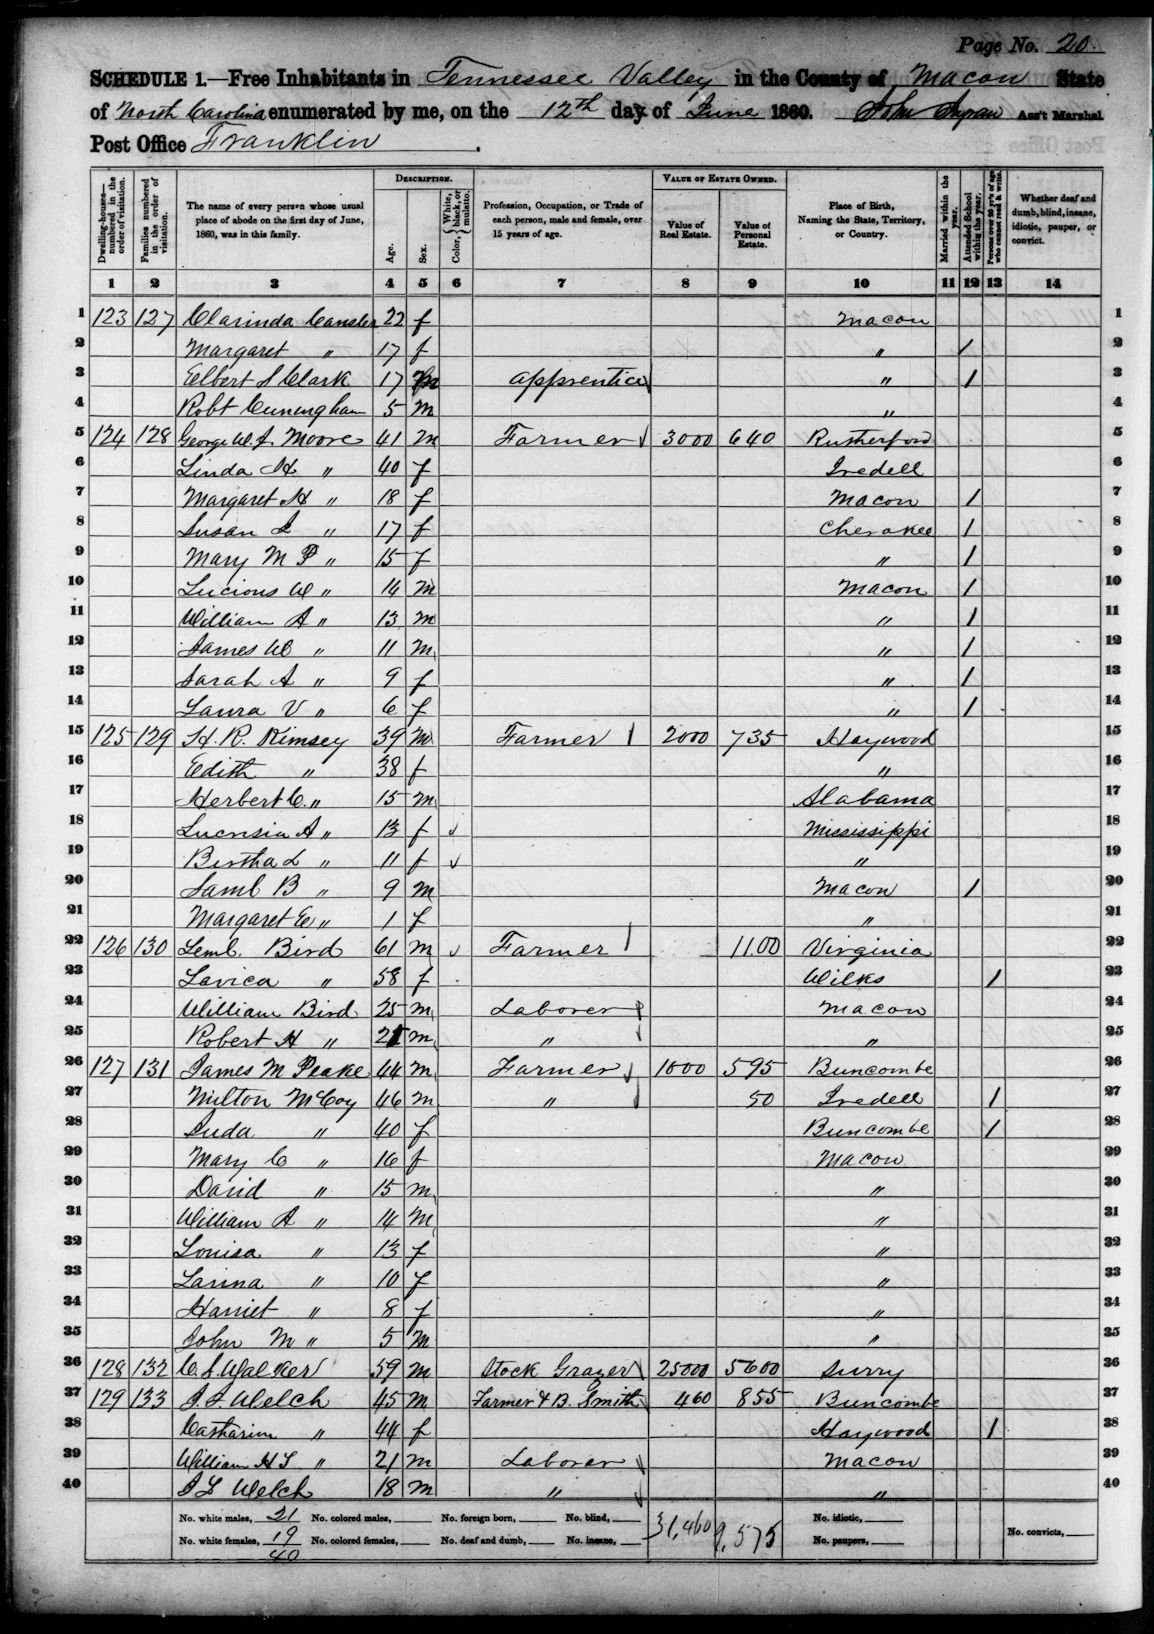 Page No. 20.
SCHEDULE 1.—Free Inhabitants in Tennessee Valley in the County of Macon State
of North Carolina enumerated by me, on the 12th day of June 1860. John Ass't Marshal.
Post Office Franklin.
DESCRIPTION. VALUE OF ESTATE OWNED.
Dwelling-houses—numbered in the order of visitation. Families numbered in the order of visitation. The name of every person whose usual place of abode on the first day of June, 1860, was in this family. Age. Sex. Color, { White, black, or mulatto. Profession, Occupation, or Trade of each person, male and female, over 15 years of age. Value of Real Estate. Value of Personal Estate. Place of Birth, Naming the State, Territory, or Country. Married within the year. Attended School within the year. Persons over 20 y'rs of age who cannot read & write. Whether deaf and dumb, blind, insane, idiotic, pauper, or convict.
1 2 3 4 5 6 7 8 9 10 11 12 13 14
1 123 127 Clarinda Cansler 22 f Macon 1
2 Margaret " 17 f " / 2
3 Elbert S Clark 17 m apprentice " / 3
4 Robt Cuningham 5 m " 4
5 124 128 George W. J. Moore 41 m Farmer 3000 640 Rutherford 5
6 Linda H " 40 f Iredell 6
7 Margaret H " 18 f Macon / 7
8 Susan L " 17 f Cherokee / 8
9 Mary M P " 15 f " / 9
10 Lucious W " 14 m Macon / 10
11 William A " 13 m " / 11
12 James W " 11 m " / 12
13 Sarah A " 9 f " / 13
14 Laura V " 6 f " / 14
15 125 129 H. R. Kimsey 39 m Farmer 2000 735 Haywood 15
16 Edith " 38 f " 16
17 Herbert C. " 15 m Alabama 17
18 Lucrisia A " 13 f ✓ Mississippi 18
19 Birtha L " 11 f ✓ " 19
20 Saml B " 9 m Macon / 20
21 Margaret E " 1 f " 21
22 126 130 Leml. Bird 61 m ✓ Farmer 1100 Virginia 22
23 Lavica " 58 f Wilks / 23
24 William Bird 25 m Laborer Macon 24
25 Robert H " 21 m " " 25
26 127 131 James M Peake 44 m Farmer 1000 595 Buncombe 26
27 Milton McCoy 46 m " 50 Iredell / 27
28 Suda " 40 f Buncombe / 28
29 Mary C " 16 f Macon 29
30 David " 15 m " 30
31 William A " 14 m " 31
32 Louisa " 13 f " 32
33 Larina " 10 f " 33
34 Harriet " 8 f " 34
35 John M " 5 m " 35
36 128 132 C. S Walker 59 m Stock Grazer 25000 5600 Surry 36
37 129 133 J. L Welch 45 m Farmer & B. Smith 460 855 Buncombe 37
38 Catharine " 44 f Haywood / 38
39 William H S " 21 m Laborer Macon 39
40 J L Welch 18 m " " 40
No. white males, 21 No. colored males, No. foreign born, No. blind, 31,460 9,575 No. idiotic, No. convicts,
No. white females, 19 No. colored females, No. deaf and dumb, No. insane, No. paupers,
40